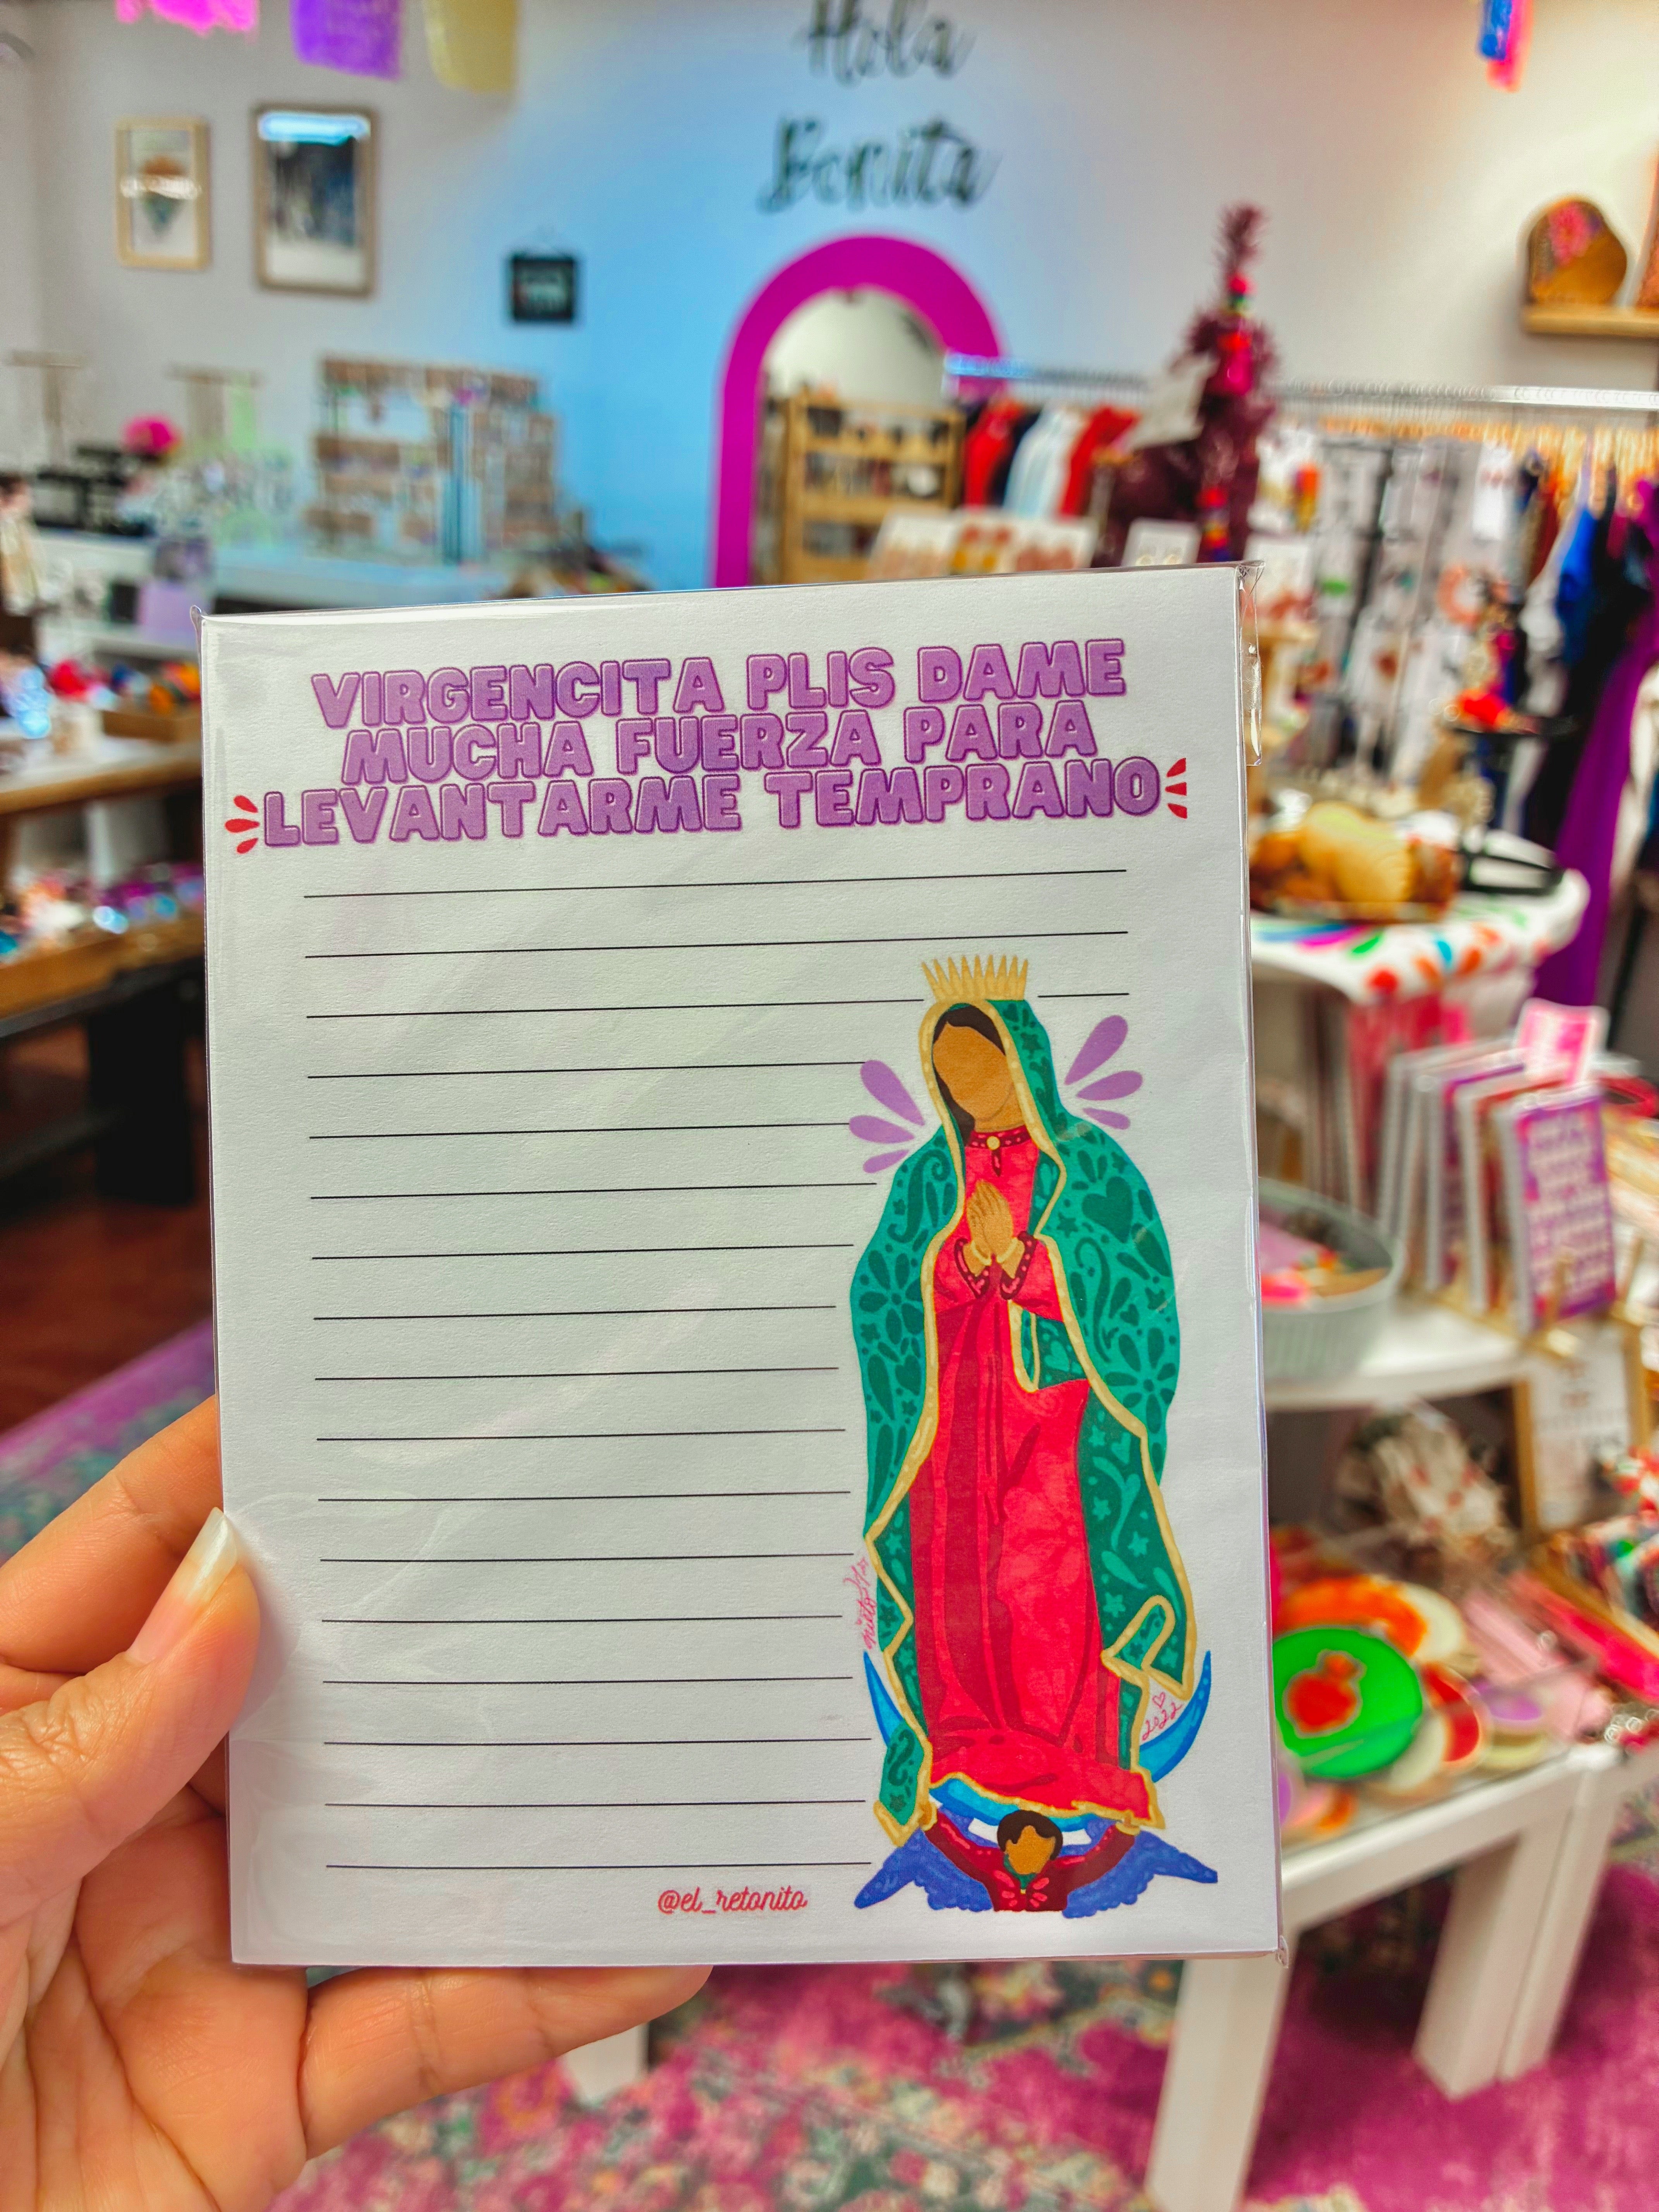 Hola
Bonita
VIRGENCITA PLIS DAME
MUCHA FUERZA PARA
LEVANTARME TEMPRANO
2022
@el_retonito